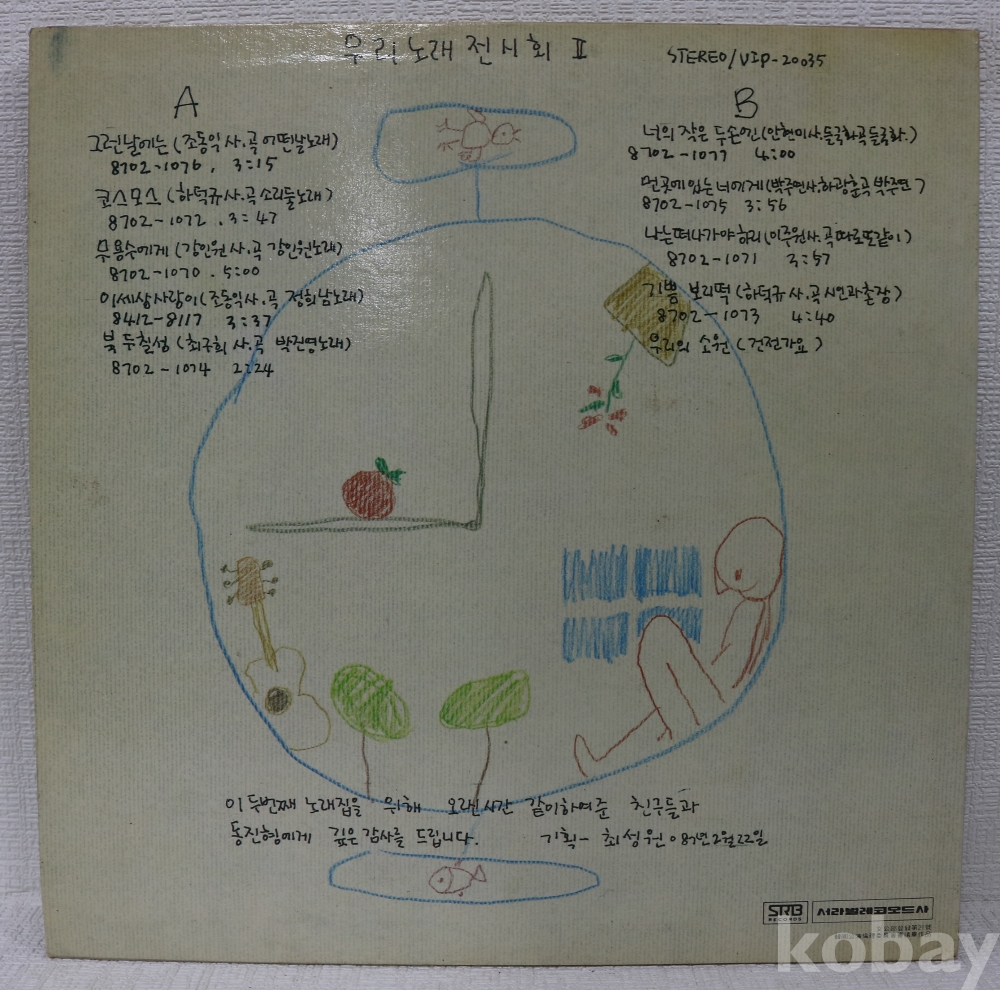 우리노래전시회 II
STEREO/VIP-20035
A
그런날에는 (조동익 사.곡 어떤날노래)
8702-1076, 3:15
코스모스 (하덕규 사.곡 소리둘노래)
8702-1072, 3:47
무용수에게 (강인원 사.곡 강인원노래)
8702-1070. 5:00
이세상사랑이 (조동익 사.곡 정희남노래)
8412-8117 3:37
북두칠성 (최구희 사.곡 박진영노래)
8702-1074 2:24
B
너의 작은 두손엔 (안현미사.들국화곡 들국화.)
8702-1077 4:00
먼곳에 있는 너에게 (박주연사.하광훈곡 박주연)
8702-1075 3:56
나는 떠나가야하리 (이주원사.곡 따로또같이)
8702-1071 3:57
기쁨 보리떡 (하덕규 사.곡 시인과촌장)
8702-1073 4:40
우리의 소원 (건전가요)
이 두번째 노래집을 위해 오랜시간 같이하여준 친구들과
동진형에게 깊은 감사를 드립니다. 기획- 최성원 87년 2월 22일
SRB RECORDS 서라벌레코오드사
kobay